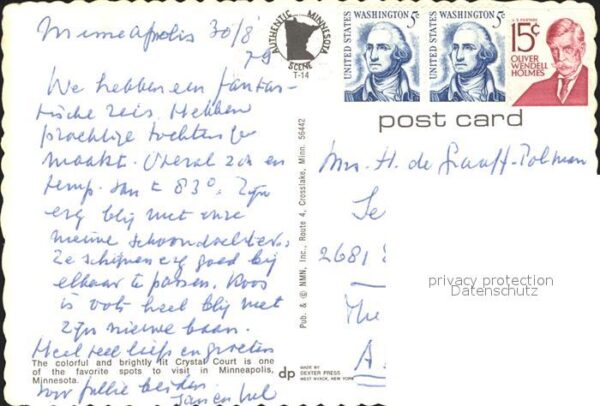 Minneapolis 30/8
79
AUTHENTIC MINNESOTA
SCENE
T-14
UNITED STATES
WASHINGTON 5¢
UNITED STATES
WASHINGTON 5¢
U.S. POSTAGE
15¢
OLIVER
WENDELL
HOLMES
post card
We hebben een fantas-
tische reis. Hebben
prachtige tochten ge
maakt. Overal zon en
temp. van ± 83°. Zijn
erg blij met onze
nieuwe schoondochter.
Ze schijnen erg goed bij
elkaar te passen. Roos
is ook heel blij met
zijn nieuwe baan.
Heel veel liefs en groeten
voor jullie beiden
Pub. & © NMN, Inc., Route 4, Crosslake, Minn. 56442
Mrs. H. de Graaff-Polman
2681
The
A
privacy protection
Datenschutz
The colorful and brightly lit Crystal Court is one
of the favorite spots to visit in Minneapolis,
Minnesota.
dp
MADE BY
DEXTER PRESS
WEST NYACK, NEW YORK